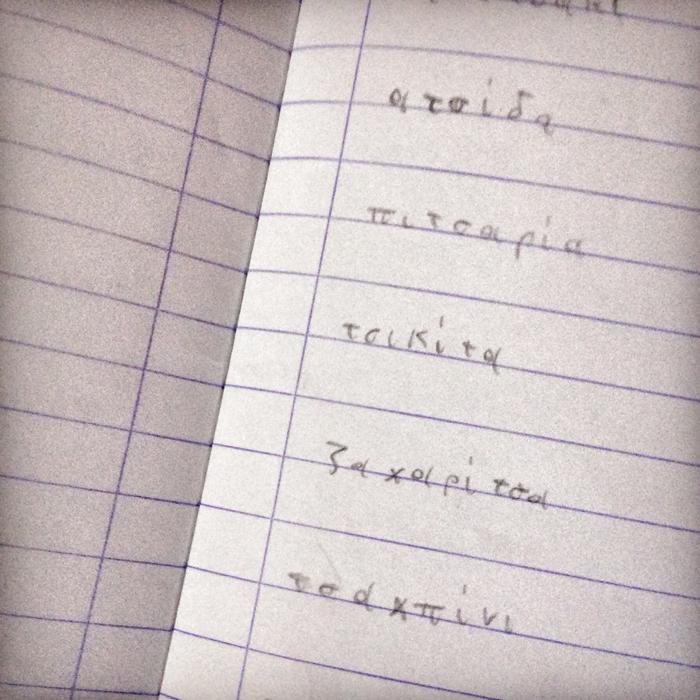 ατσίδα
πιτσαρία
τσικίτα
ζαχαρίτσα
τσαχπίνι